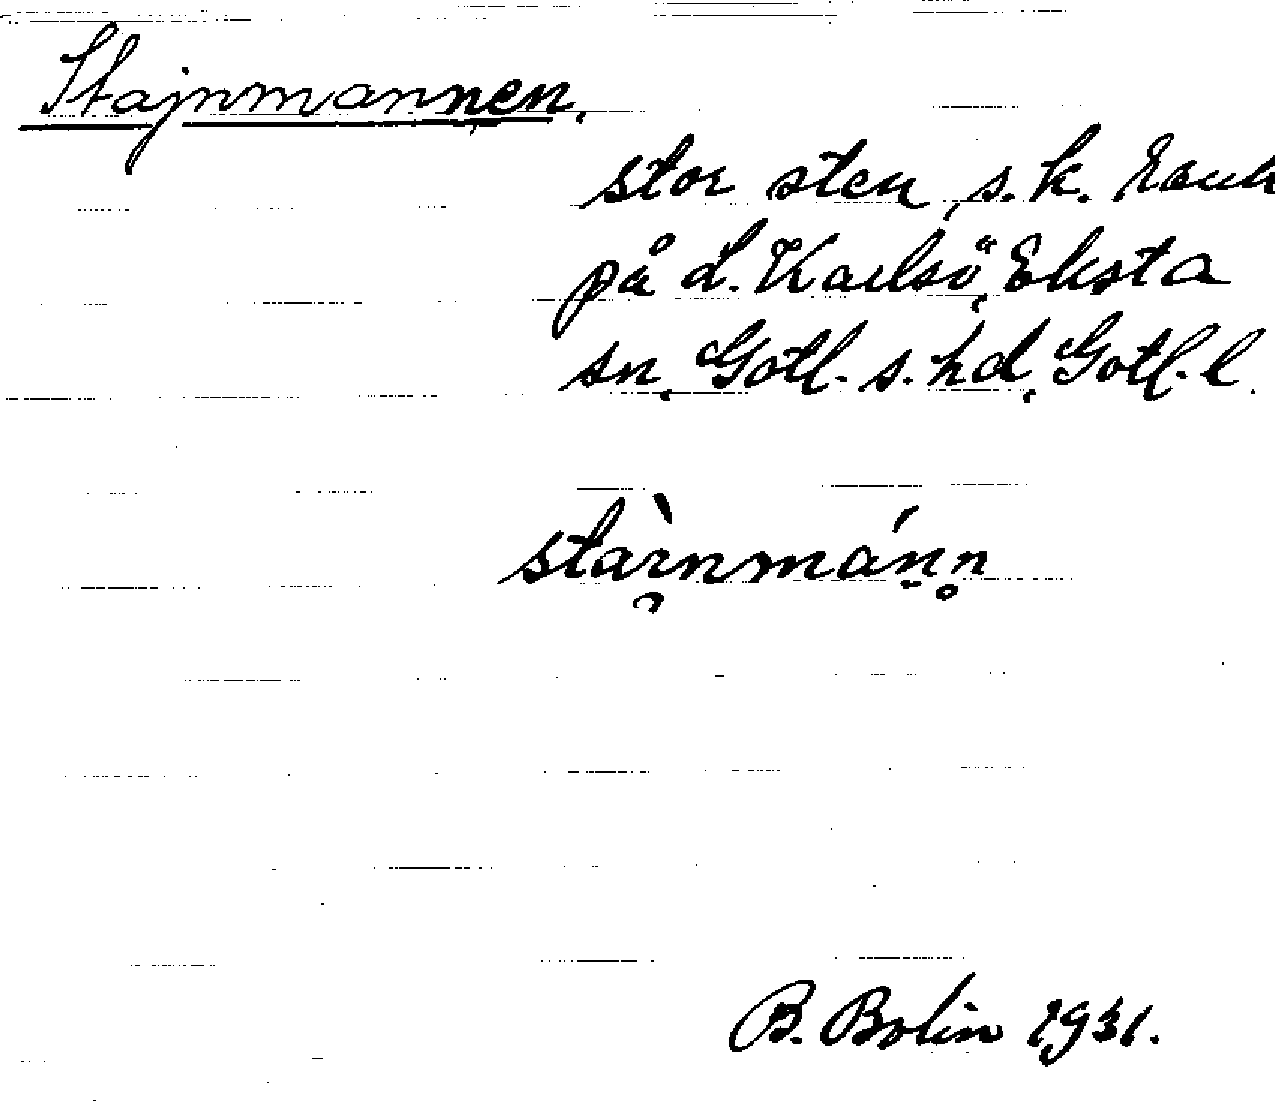 Stajnmannen,
stor sten, s.k. rauk
på L. Karlsö, Eksta
sn, Gotl. s. hd, Gotl. l.
B. Bolin 1931.